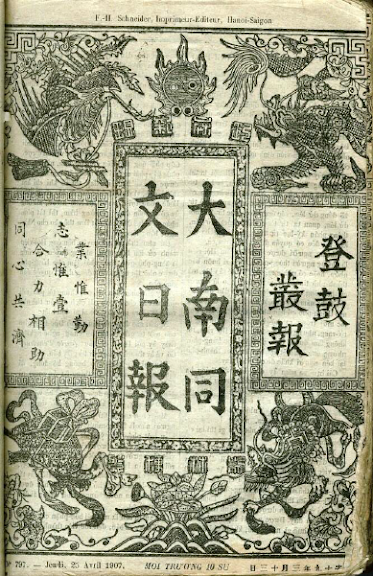 F.-H. Schneider, Imprimeur-Editeur, Hanoi-Saigon
登鼓
叢報
大南同
文日報
業惟勤
志惟壹
合力相助
同心共濟
797. — Jeudi, 25 Avril 1907.
MỌI TRƯƠNG 10 SU
十九年三月十三日